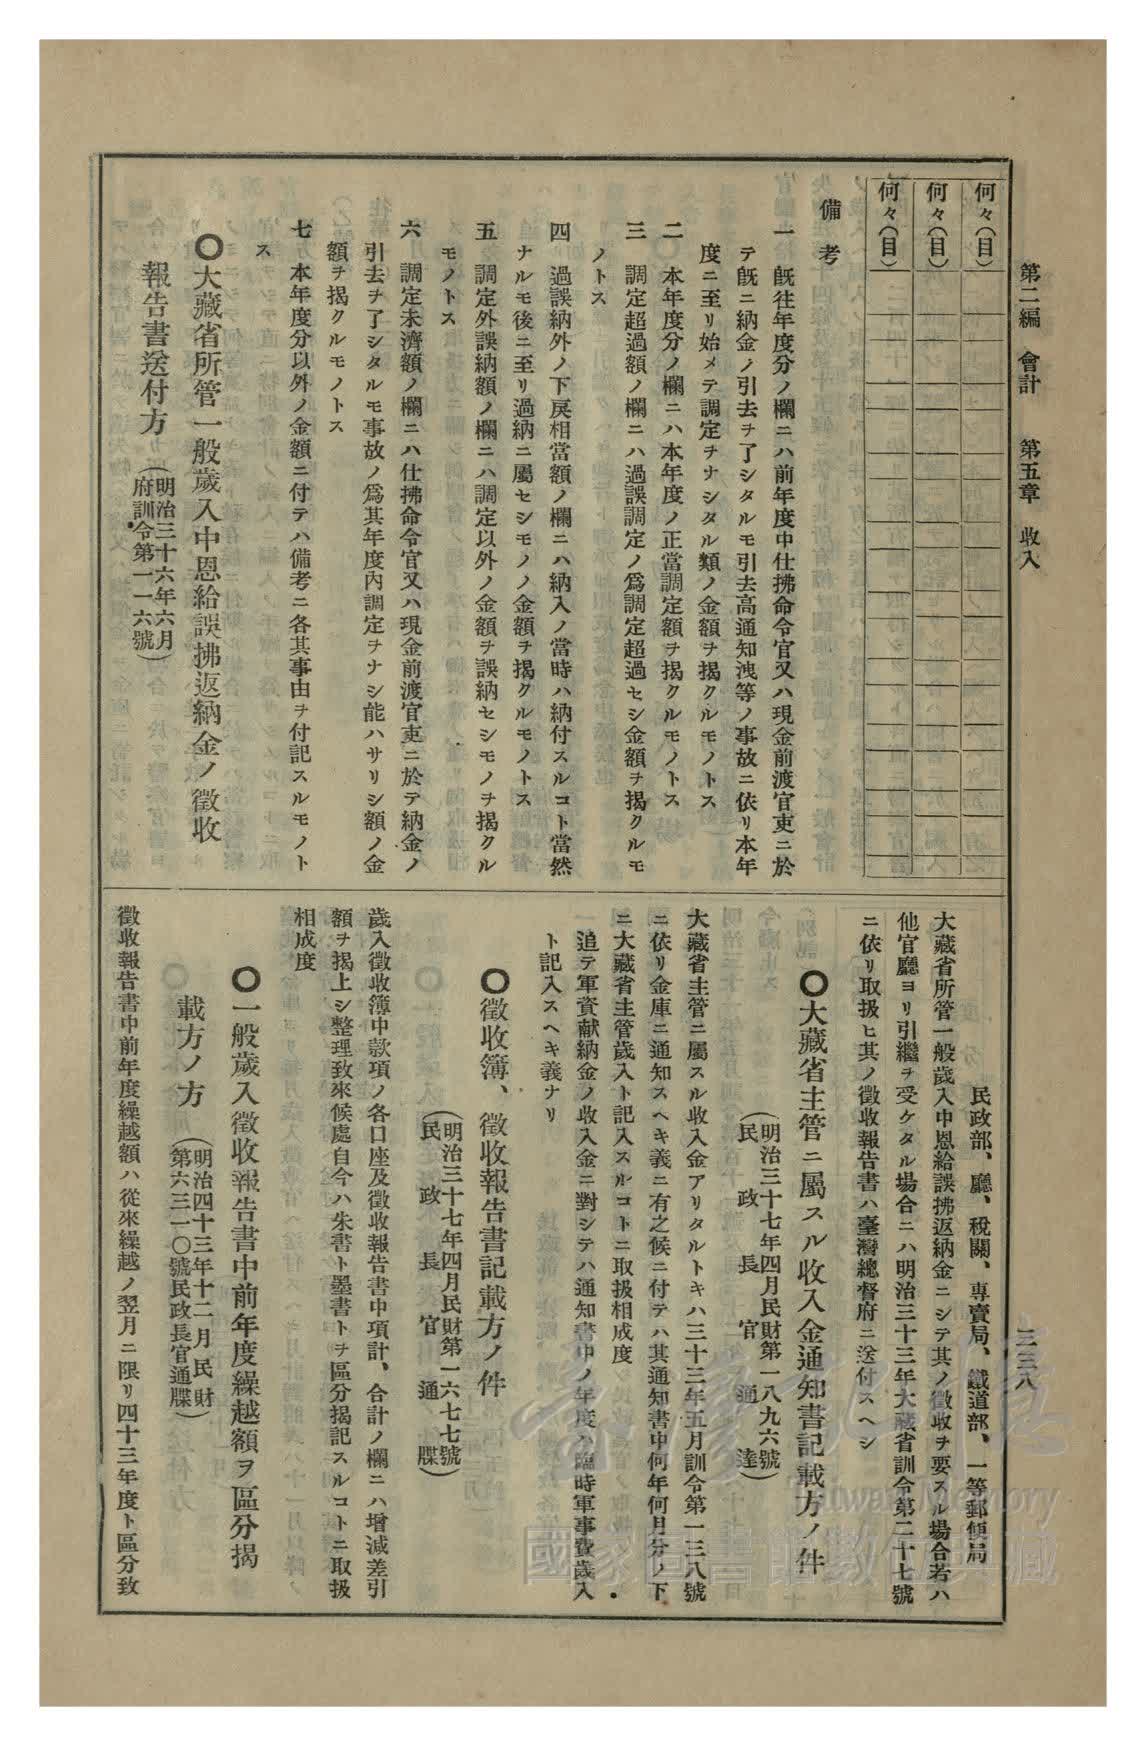 第二編 會計 第五章 收入 三三八
何々(目)
何々(目)
何々(目)
備考
一 既往年度分ノ欄ニハ前年度中仕拂命令官又ハ現金前渡官吏ニ於
テ既ニ納金ノ引去ヲ了シタルモ引去高通知洩等ノ事故ニ依リ本年
度ニ至リ始メテ調定ヲナシタル類ノ金額ヲ揭クルモノトス
二 本年度分ノ欄ニハ本年度ノ正當調定額ヲ揭クルモノトス
三 調定超過額ノ欄ニハ過誤調定ノ爲調定超過セシ金額ヲ揭クルモ
ノトス
四 過誤納外ノ下戾相當額ノ欄ニハ納入ノ當時ハ納付スルコト當然
ナルモ後ニ至リ過納ニ屬セシモノノ金額ヲ揭クルモノトス
五 調定外誤納額ノ欄ニハ調定以外ノ金額ヲ誤納セシモノヲ揭クル
モノトス
六 調定未濟額ノ欄ニハ仕拂命令官又ハ現金前渡官吏ニ於テ納金ノ
引去ヲ了シタルモ事故ノ爲其年度內調定ヲナシ能ハサリシ額ノ金
額ヲ揭クルモノトス
七 本年度分以外ノ金額ニ付テハ備考ニ各其事由ヲ付記スルモノト
ス
○大藏省所管一般歲入中恩給誤拂返納金ノ徵收
報告書送付方 (明治三十六年六月
府訓令第一一六號)
民政部、廳、稅關、專賣局、鐵道部、一等郵便局
大藏省所管一般歲入中恩給誤拂返納金ニシテ其ノ徵收ヲ要スル場合若ハ
他官廳ヨリ引繼ヲ受ケタル場合ニハ明治三十三年大藏省訓令第二十七號
ニ依リ取扱ヒ其ノ徵收報告書ハ臺灣總督府ニ送付スヘシ
○大藏省主管ニ屬スル收入金通知書記載方ノ件
(明治三十七年四月民財第一八九六號
民政長官通達)
大藏省主管ニ屬スル收入金アリタルトキハ三十三年五月訓令第一三八號
ニ依リ金庫ニ通知スヘキ義ニ有之候ニ付テハ其通知書中何年何月分ノ下
ニ大藏省主管歲入ト記入スルコトニ取扱相成度
追テ軍資献納金ノ收入金ニ對シテハ通知書中ノ年度ハ臨時軍事費歲入
ト記入スヘキ義ナリ
○徵收簿、徵收報告書記載方ノ件
(明治三十七年四月民財第一六七七號
民政長官通牒)
歲入徵收簿中款項ノ各口座及徵收報告書中項計、合計ノ欄ニハ增減差引
額ヲ揭上シ整理致來候處自今ハ朱書ト墨書トヲ區分揭記スルコトニ取扱
相成度
○一般歲入徵收報告書中前年度繰越額ヲ區分揭
載方ノ方 (明治四十三年十二月民財
第六三一〇號民政長官通牒)
徵收報告書中前年度繰越額ハ從來繰越ノ翌月ニ限リ四十三年度ト區分致
臺灣記憶
Taiwan Memory
國家圖書館數位典藏